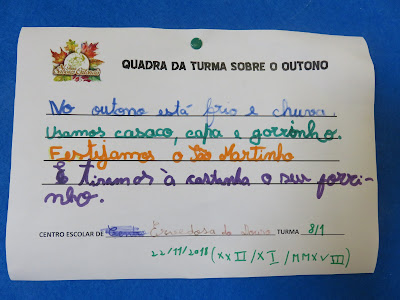 QUADRA DA TURMA SOBRE O OUTONO
No outono está frio e chuva.
Usamos casaco, capa e gorrinho.
Festijamos o São Martinho
E tiramos à castanha o seu forri-
nho.
CENTRO ESCOLAR DE Ervedosa do Douro TURMA 3/1
22/11/2018 (XXII/XI/MMXVIII)